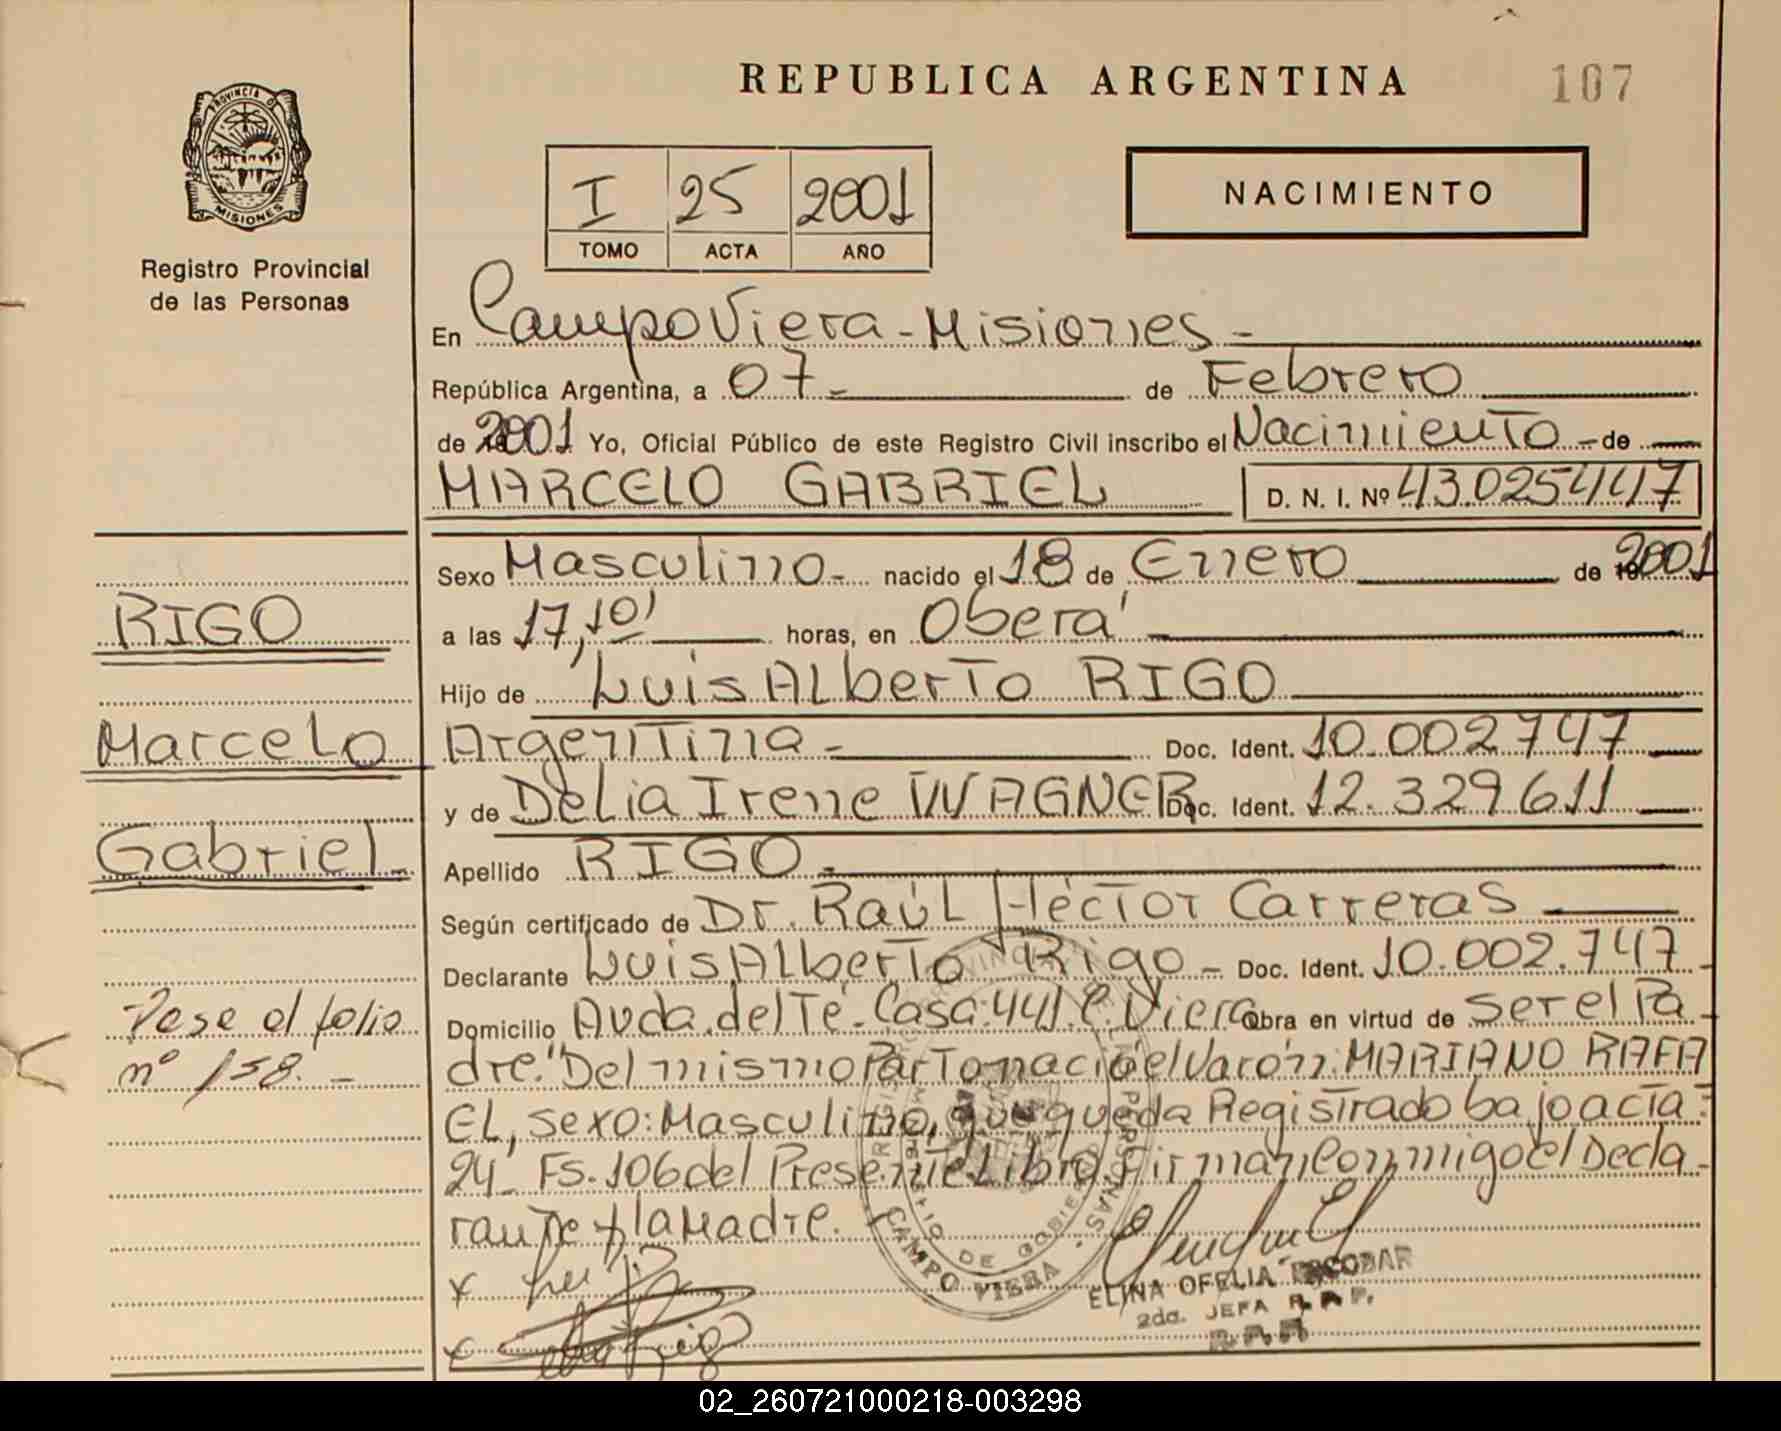 REPUBLICA ARGENTINA
107
PROVINCIA DE
MISIONES
Registro Provincial
de las Personas
I 25 2001
TOMO ACTA AÑO
NACIMIENTO
En Campo Viera - Misiones -
República Argentina, a 07 - de Febrero
de 2001 Yo, Oficial Público de este Registro Civil inscribo el Nacimiento - de
MARCELO GABRIEL D. N. I. Nº 43.025447
Sexo Masculino - nacido el 18 de Enero de 2001
RIGO
a las 17,10' horas, en Oberá
Hijo de Luis Alberto RIGO
Marcelo
Argentina - Doc. Ident. 10.002747
y de Delia Irene WAGNER Doc. Ident. 12.329611
Gabriel
Apellido RIGO -
Según certificado de Dr. Raúl Héctor Carreras
Declarante Luis Alberto Rigo - Doc. Ident. 10.002.747 -
Domicilio Avda. del Té - Casa: 441. C. Viera Obra en virtud de ser el Pa-
dre." Del mismo Parto nació el Varón: MARIANO RAFA
EL, sexo: Masculino, que queda Registrado bajo acta:
24 - Fs. 106 del Presente Libro. Firman conmigo el Decla-
rante y la Madre.
Pase al folio
nº 158. -
x
x
CAMPO VIERA
ELINA OFELIA ESCOBAR
2da. JEFA
02_260721000218-003298